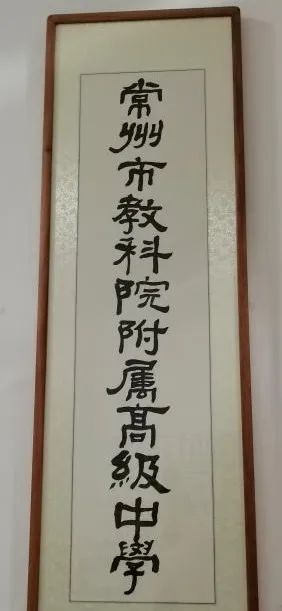 常州市教科院附属高級中學